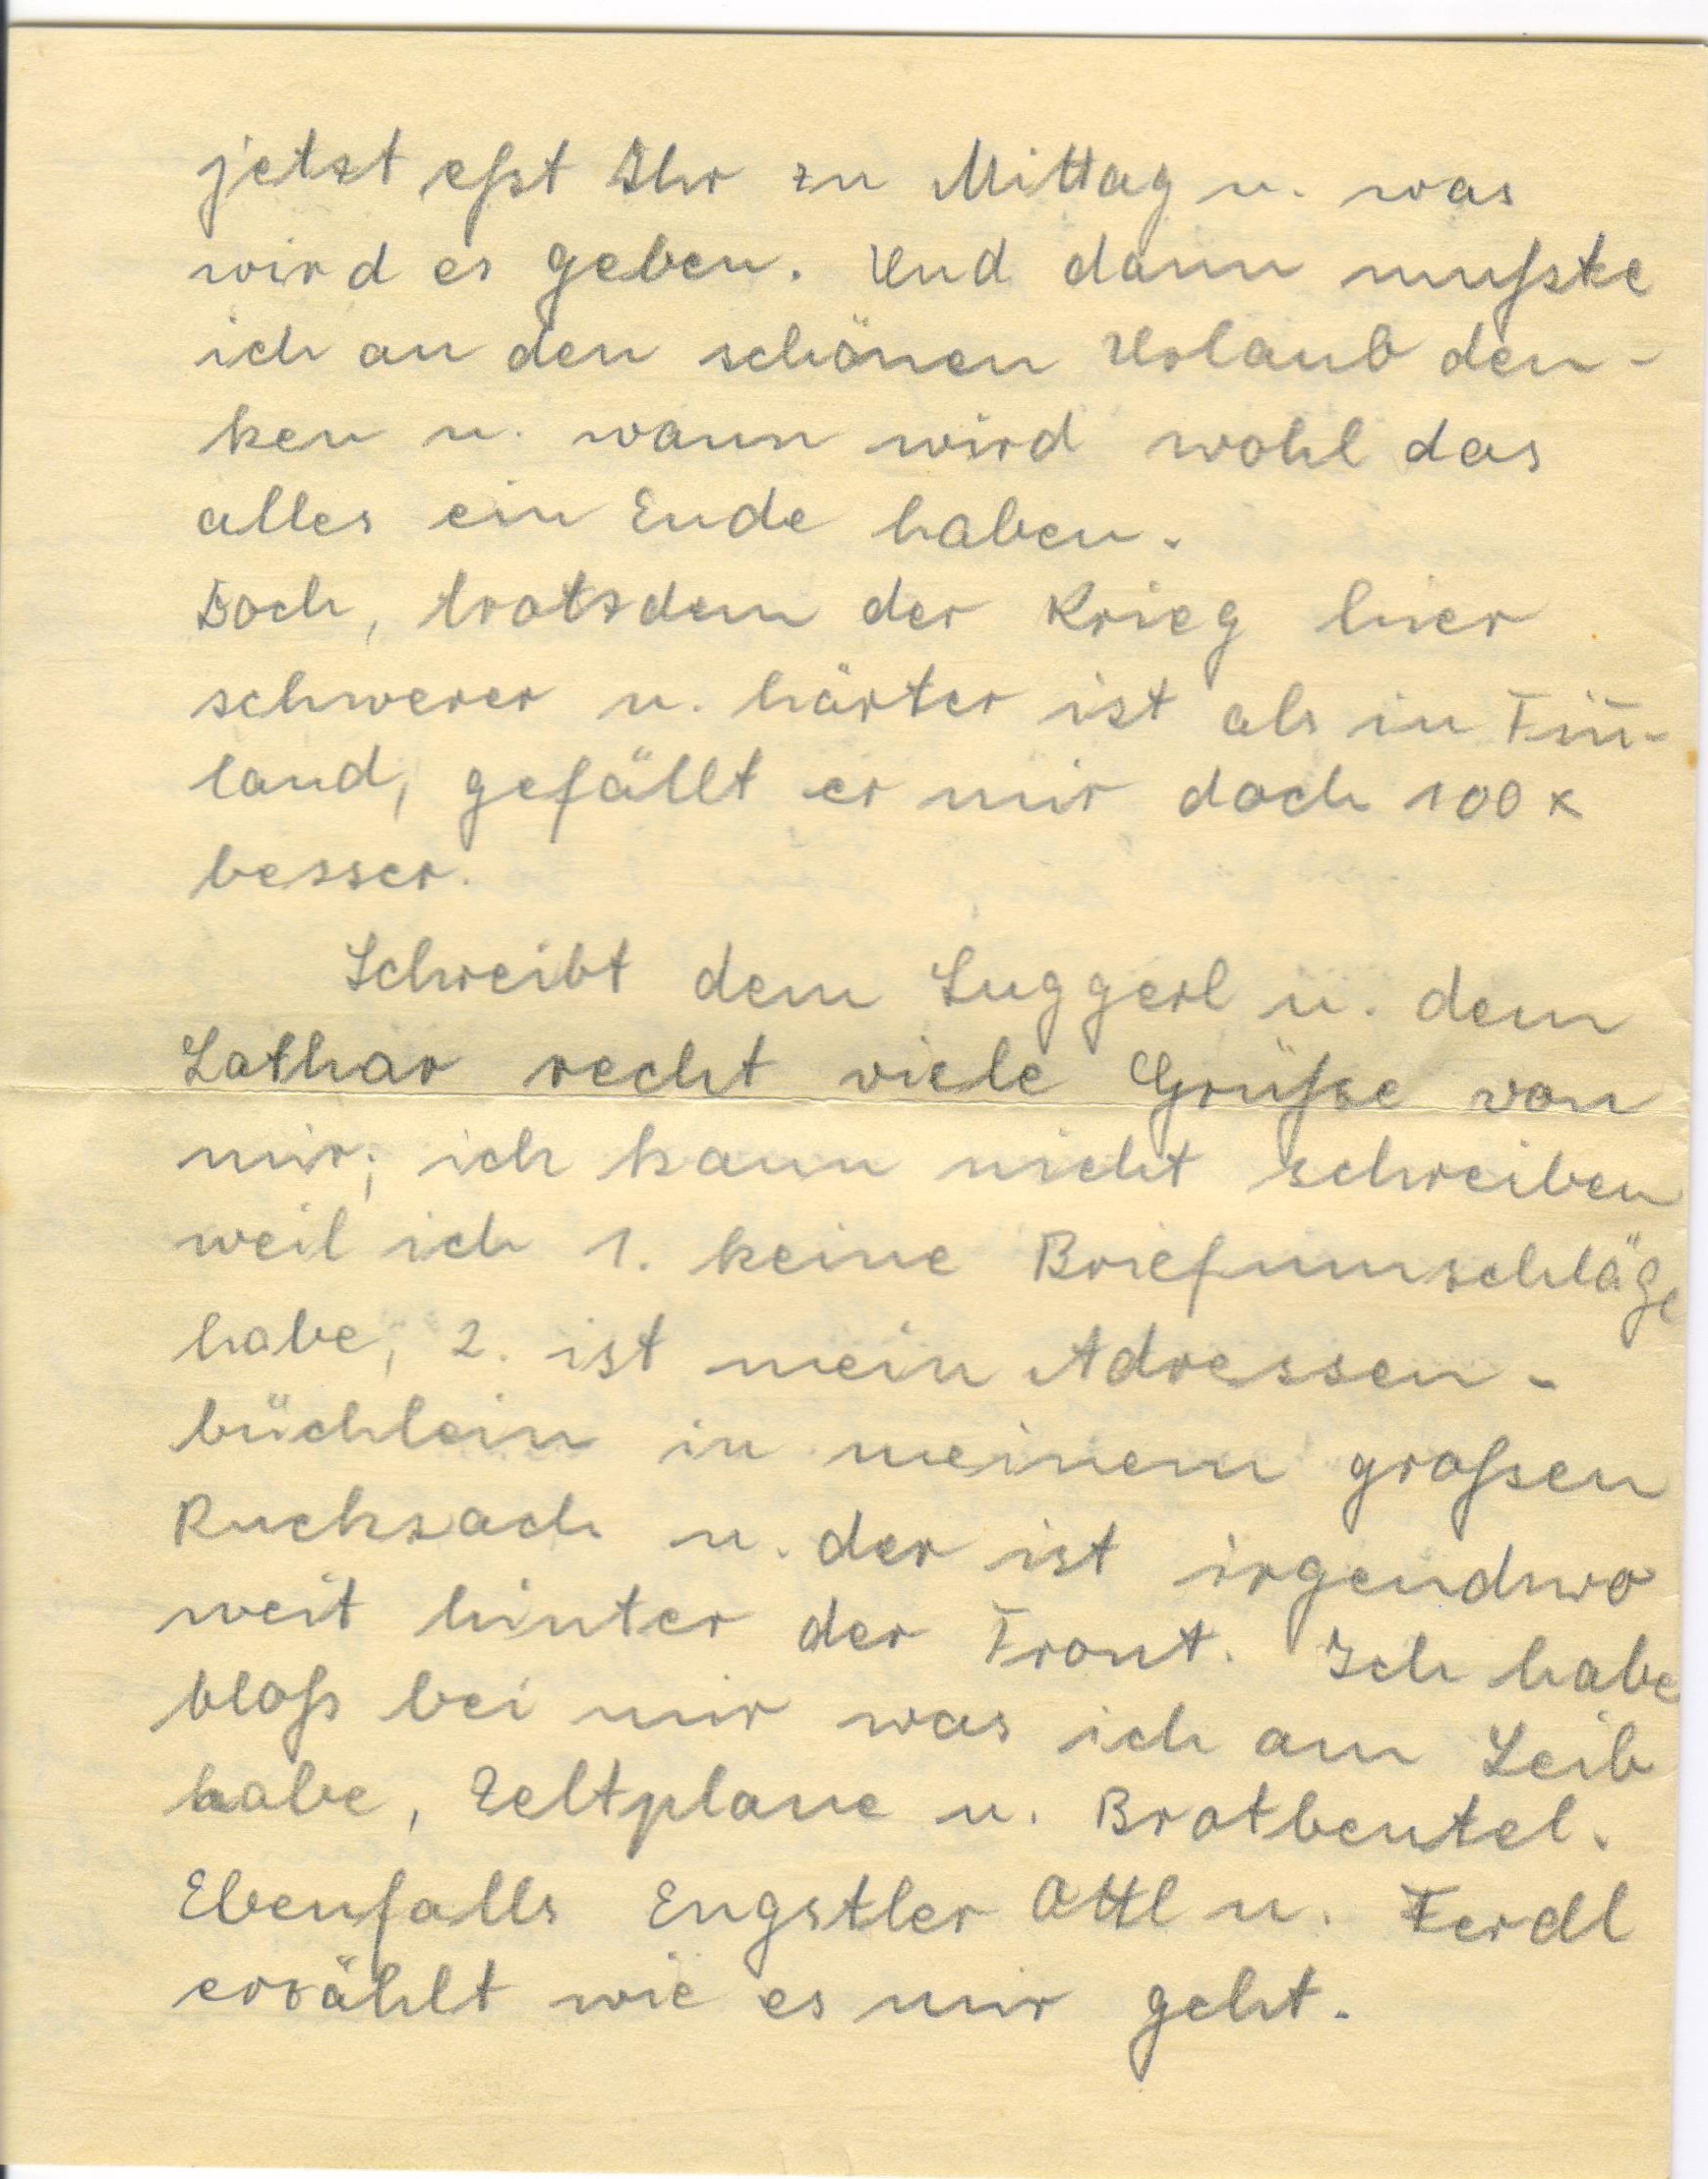 jetzt eßt Ihr zu Mittag u. was
wird es geben. Und dann mußte
ich an den schönen Urlaub den-
ken u. wann wird wohl das
alles ein Ende haben.
Doch, trotzdem der Krieg hier
schwerer u. härter ist als in Fin̄-
land, gefällt er mir doch 100 x
besser.
Schreibt dem Luggerl u. dem
Lothar recht viele Grüße von
mir; ich kann nicht schreiben
weil ich 1. keine Briefumschläge
habe, 2. ist mein Adressen-
büchlein in meinem großen
Rucksack u. der ist irgendwo
weit hinter der Front. Ich habe
bloß bei mir was ich am Leib
habe, Zeltplane u. Brotbeutel.
Ebenfalls Engstler Ottl u. Ferdl
erzählt wie es mir geht.